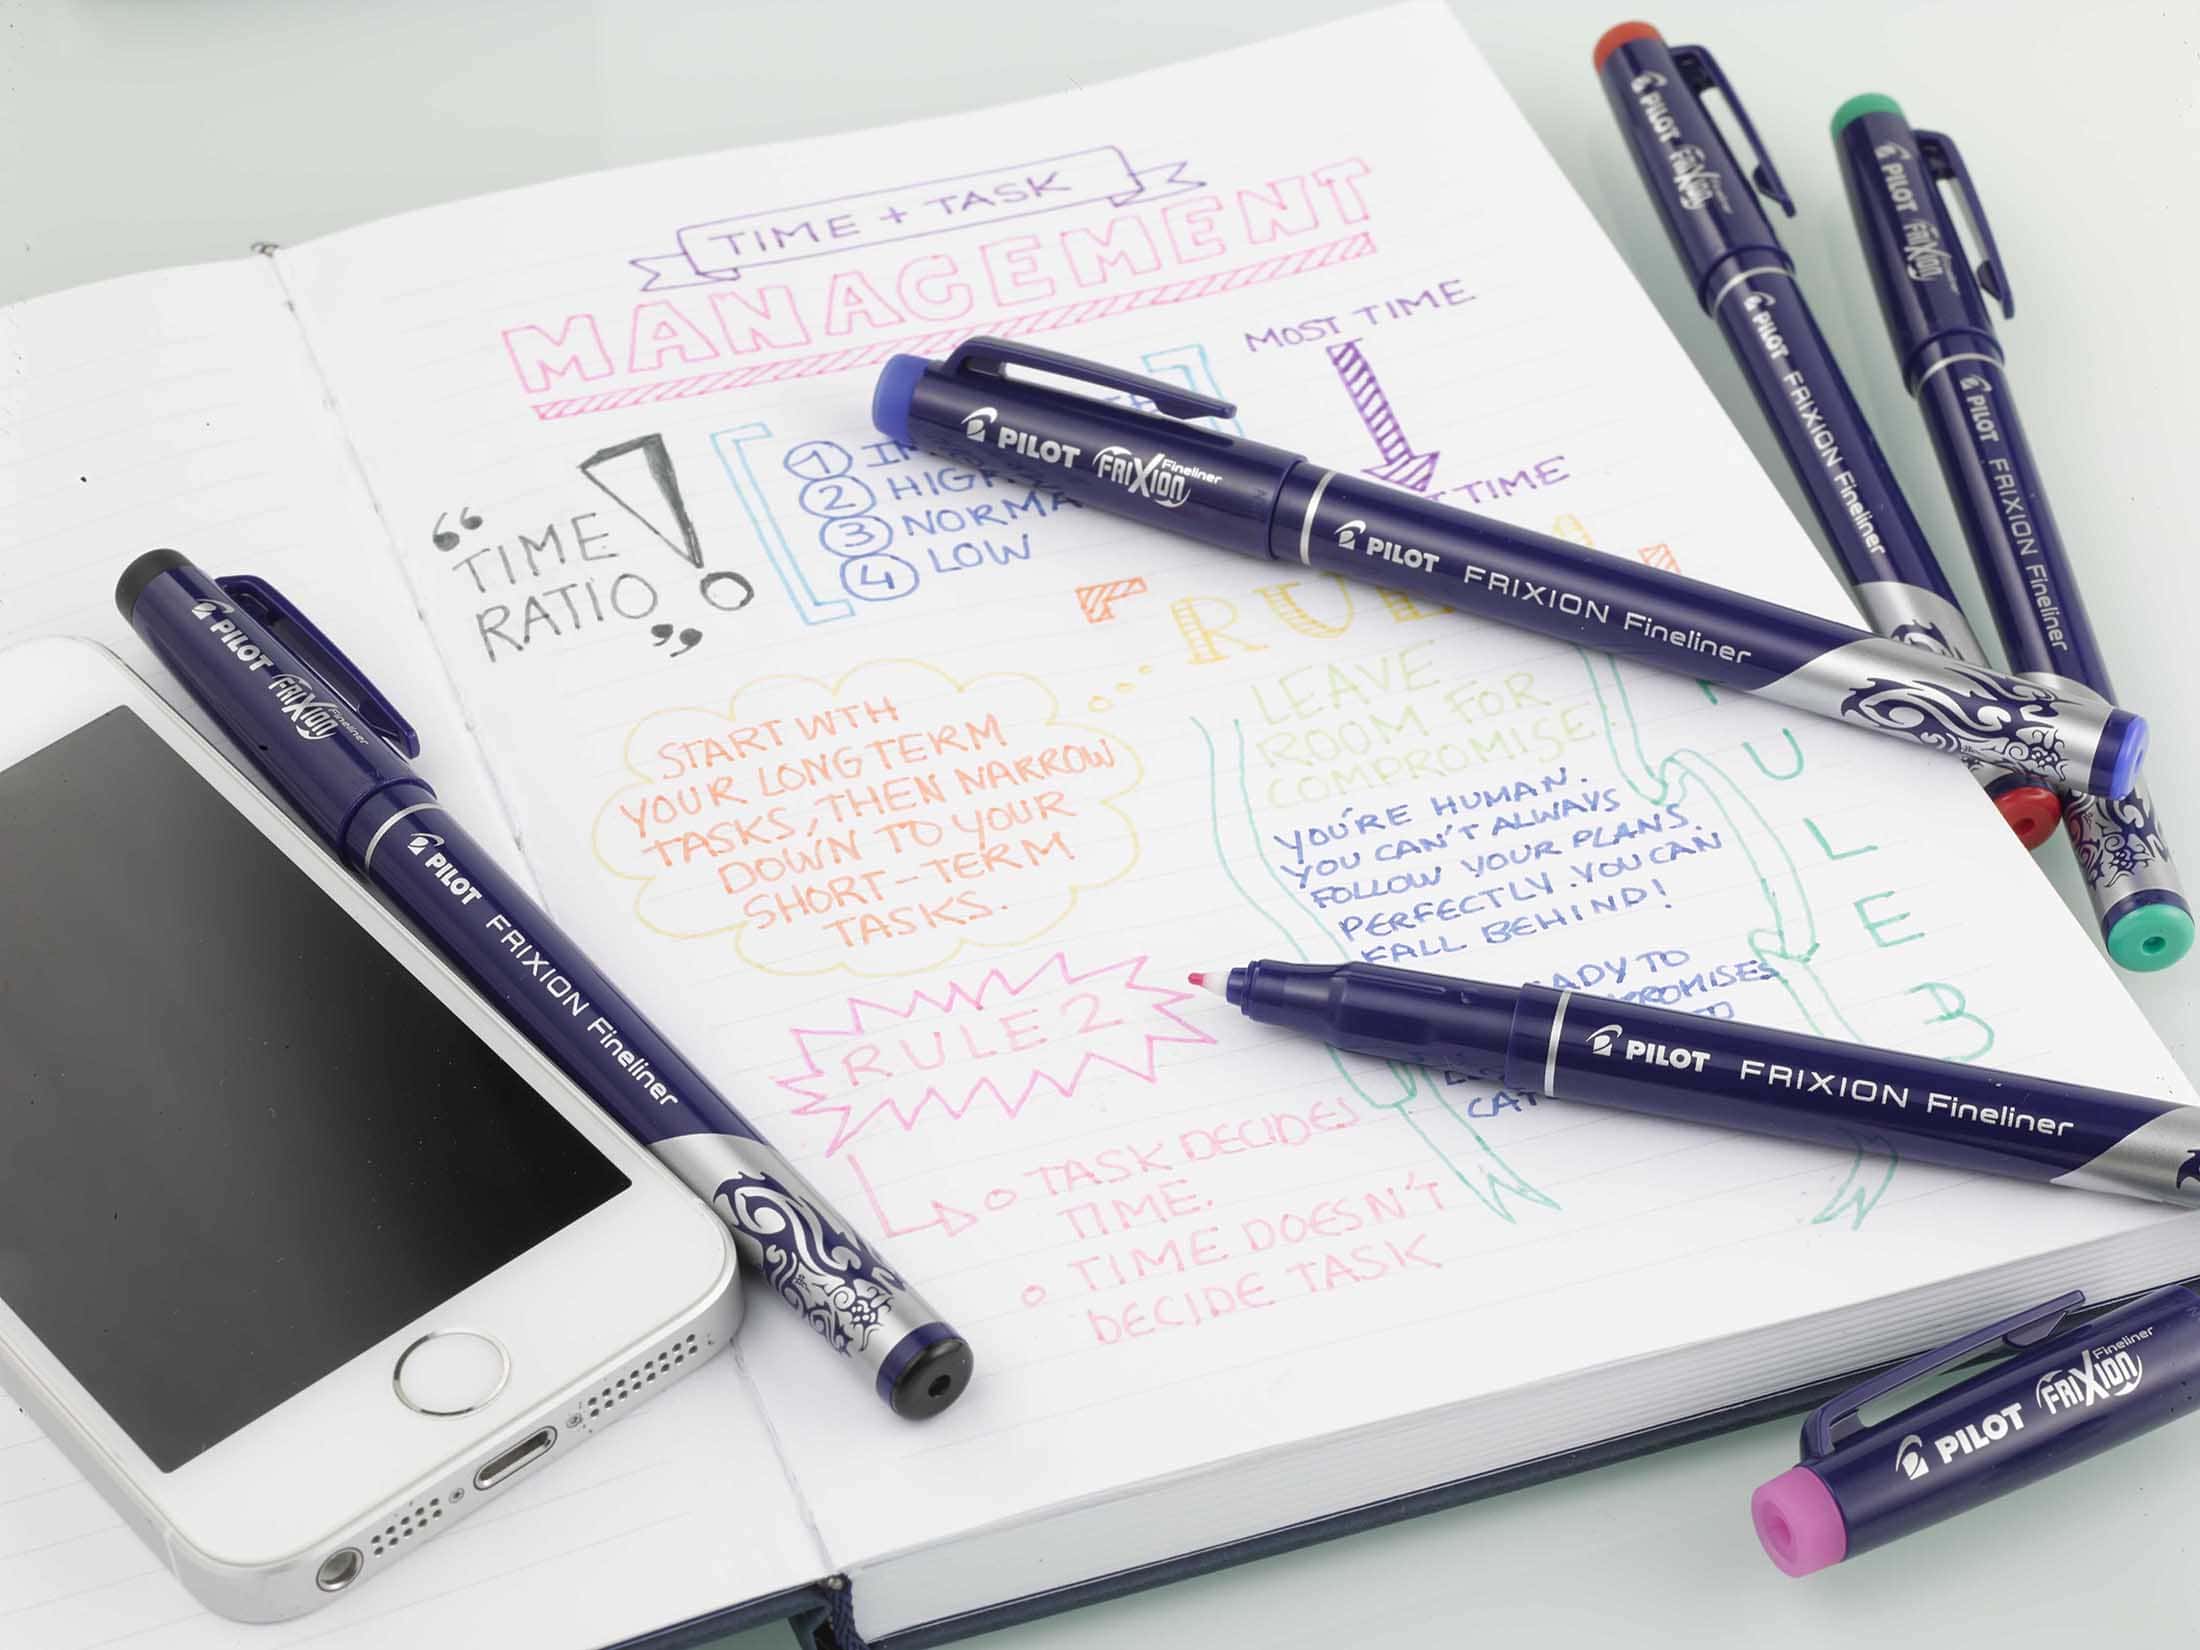 TIME + TASK
MANAGEMENT
MOST TIME
TIME
"TIME
RATIO"
1
2 HIGH
3 NORMA
4 LOW
START WTH
YOUR LONG TERM
TASKS, THEN NARROW
DOWN TO YOUR
SHORT-TERM
TASKS.
LEAVE
ROOM FOR
COMPROMISE
YOU'RE HUMAN.
YOU CAN'T ALWAYS
FOLLOW YOUR PLANS.
PERFECTLY. YOU CAN
FALL BEHIND!
TO
U
L
E
3
RULE 2
TASK DECIDES
TIME.
TIME DOESN'T
DECIDE TASK
PILOT FRIXION Fineliner
PILOT FRIXION Fineliner
PILOT FRIXION Fineliner
PILOT FRIXION Fineliner
PILOT FRIXION Fineliner
PILOT FRIXION Fineliner
PILOT FRIXION Fineliner
PILOT FRIXION Fineliner
PILOT FRIXION Fineliner
PILOT FRIXION Fineliner